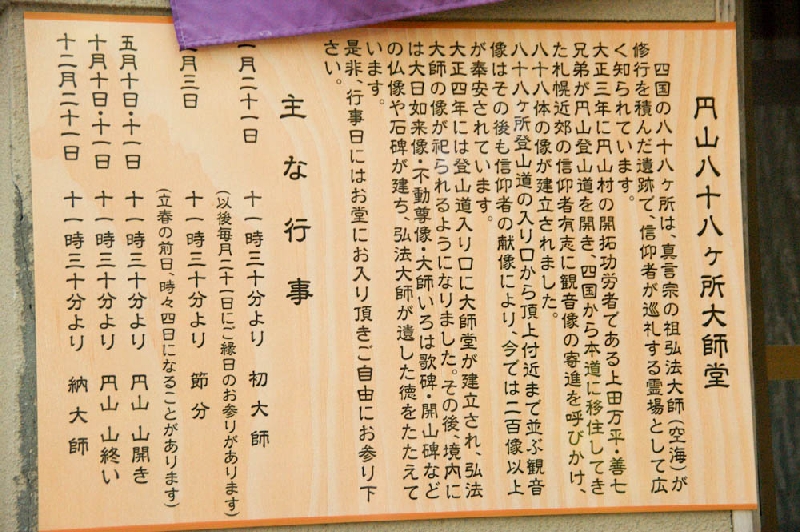 円山八十八ヶ所大師堂
四国の八十八ヶ所は、真言宗の祖弘法大師(空海)が
修行を積んだ遺跡で、信仰者が巡礼する霊場として広
く知られています。
大正三年に円山村の開拓功労者である上田万平・善七
兄弟が円山登山道を開き、四国から本道に移住してき
た札幌近郊の信仰者有志に観音像の寄進を呼びかけ、
八十八体の像が建立されました。
八十八ヶ所登山道の入り口から頂上付近まで並ぶ観音
像はその後も信仰者の献像により、今では二百像以上
が奉安されています。
大正四年には登山道入り口に大師堂が建立され、弘法
大師の像が祀られるようになりました。その後、境内に
は大日如来像・不動尊像・大師いろは歌碑・開山碑など
の仏像や石碑が建ち、弘法大師が遺した徳をたたえて
います。
是非、行事日にはお堂にお入り頂きご自由にお参り下
さい。
主な行事
月二十一日 十一時三十分より 初大師
(以後毎月二十一日にご縁日のお参りがあります)
月三日 十一時三十分より 節分
(立春の前日、時々四日になることがあります)
五月十日・十一日 十一時三十分より 円山 山開き
十月十日・十一日 十一時三十分より 円山 山終い
十二月二十一日 十一時三十分より 納大師